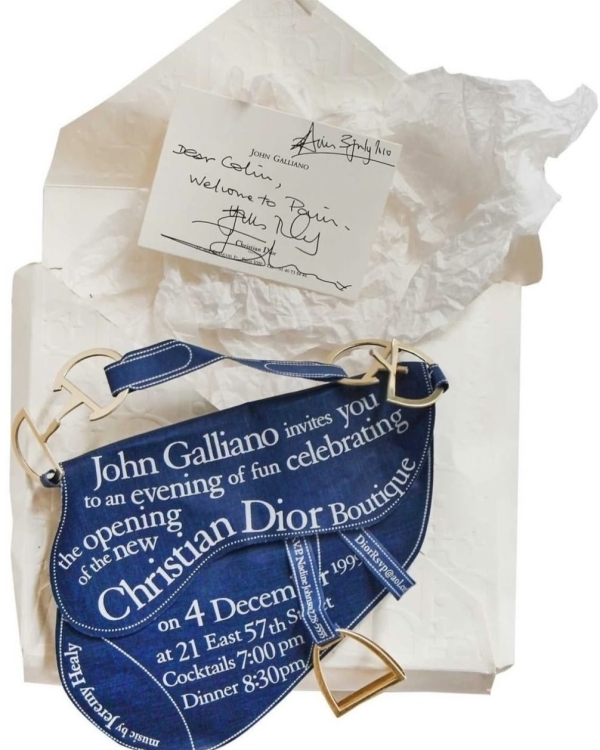 JOHN GALLIANO
Dear Colin,
Welcome to
Christian Dior
John Galliano invites you
to an evening of fun celebrating
the opening
of the new
Christian Dior Boutique
on 4 Decem r 199
at 21 East 57th St et
Cocktails 7:00 pm
Dinner 8:30pm
DiorRsvp@aol.
music by Jeremy Healy